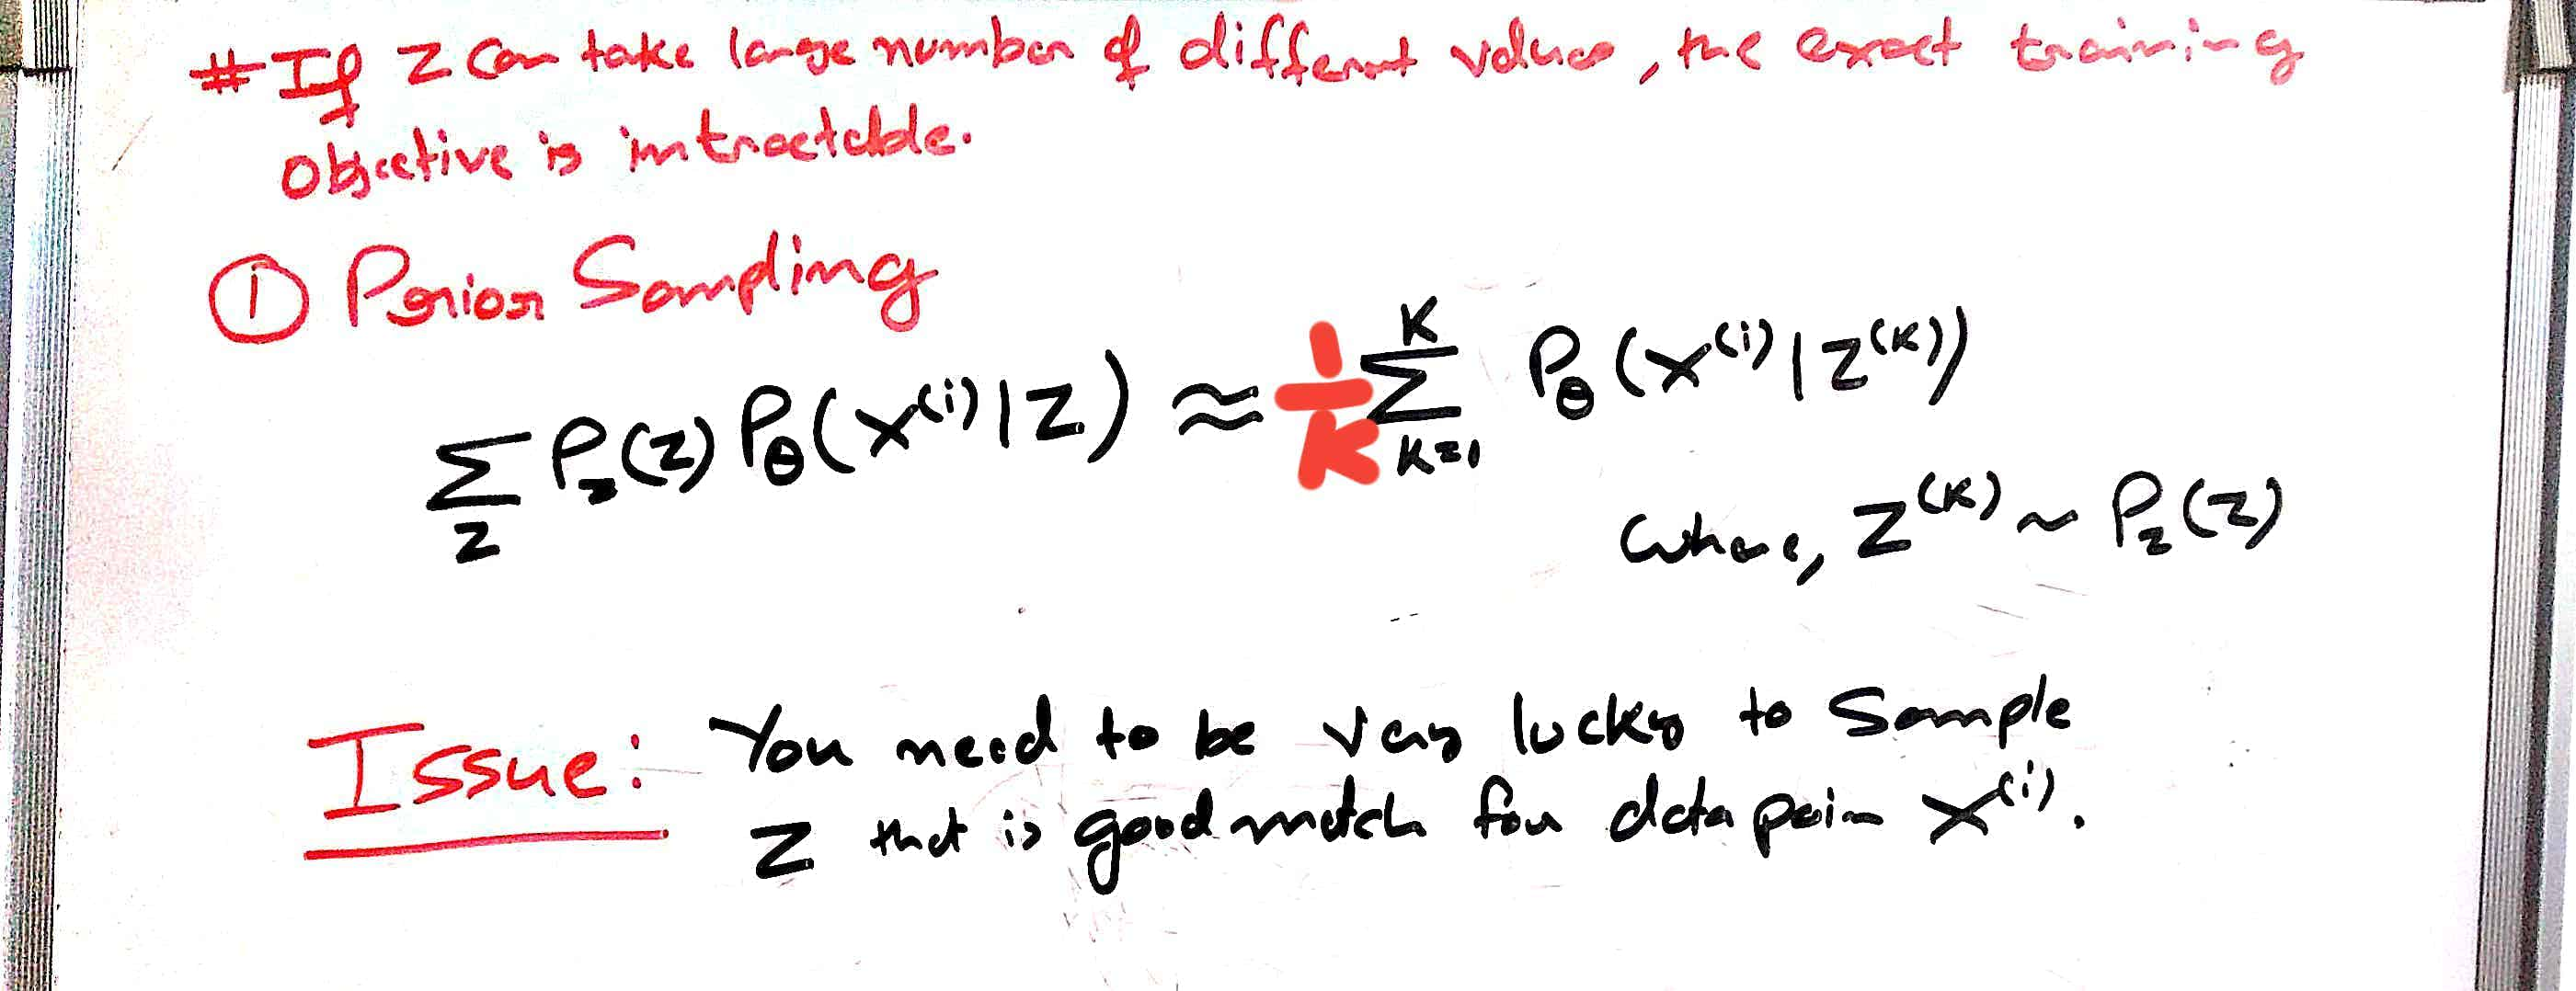 # If z can take large number of different values, the exact training
objective is intractable.
① Prior Sampling
∑_z P_z(z) P_θ(x^(i)|z) ≈ 1/K ∑_{k=1}^{K} P_θ(x^(i)|z^(k))
where, z^(k) ~ P_z(z)
Issue: You need to be very lucky to sample
z that is good match for data poin x^(i).